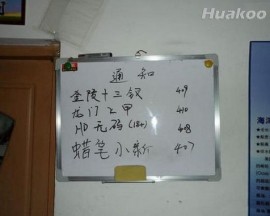 Huakoo
通知
金陵十三钗 409
龙门之甲 410
HD无码(18+) 408
蜡笔小新 407
海